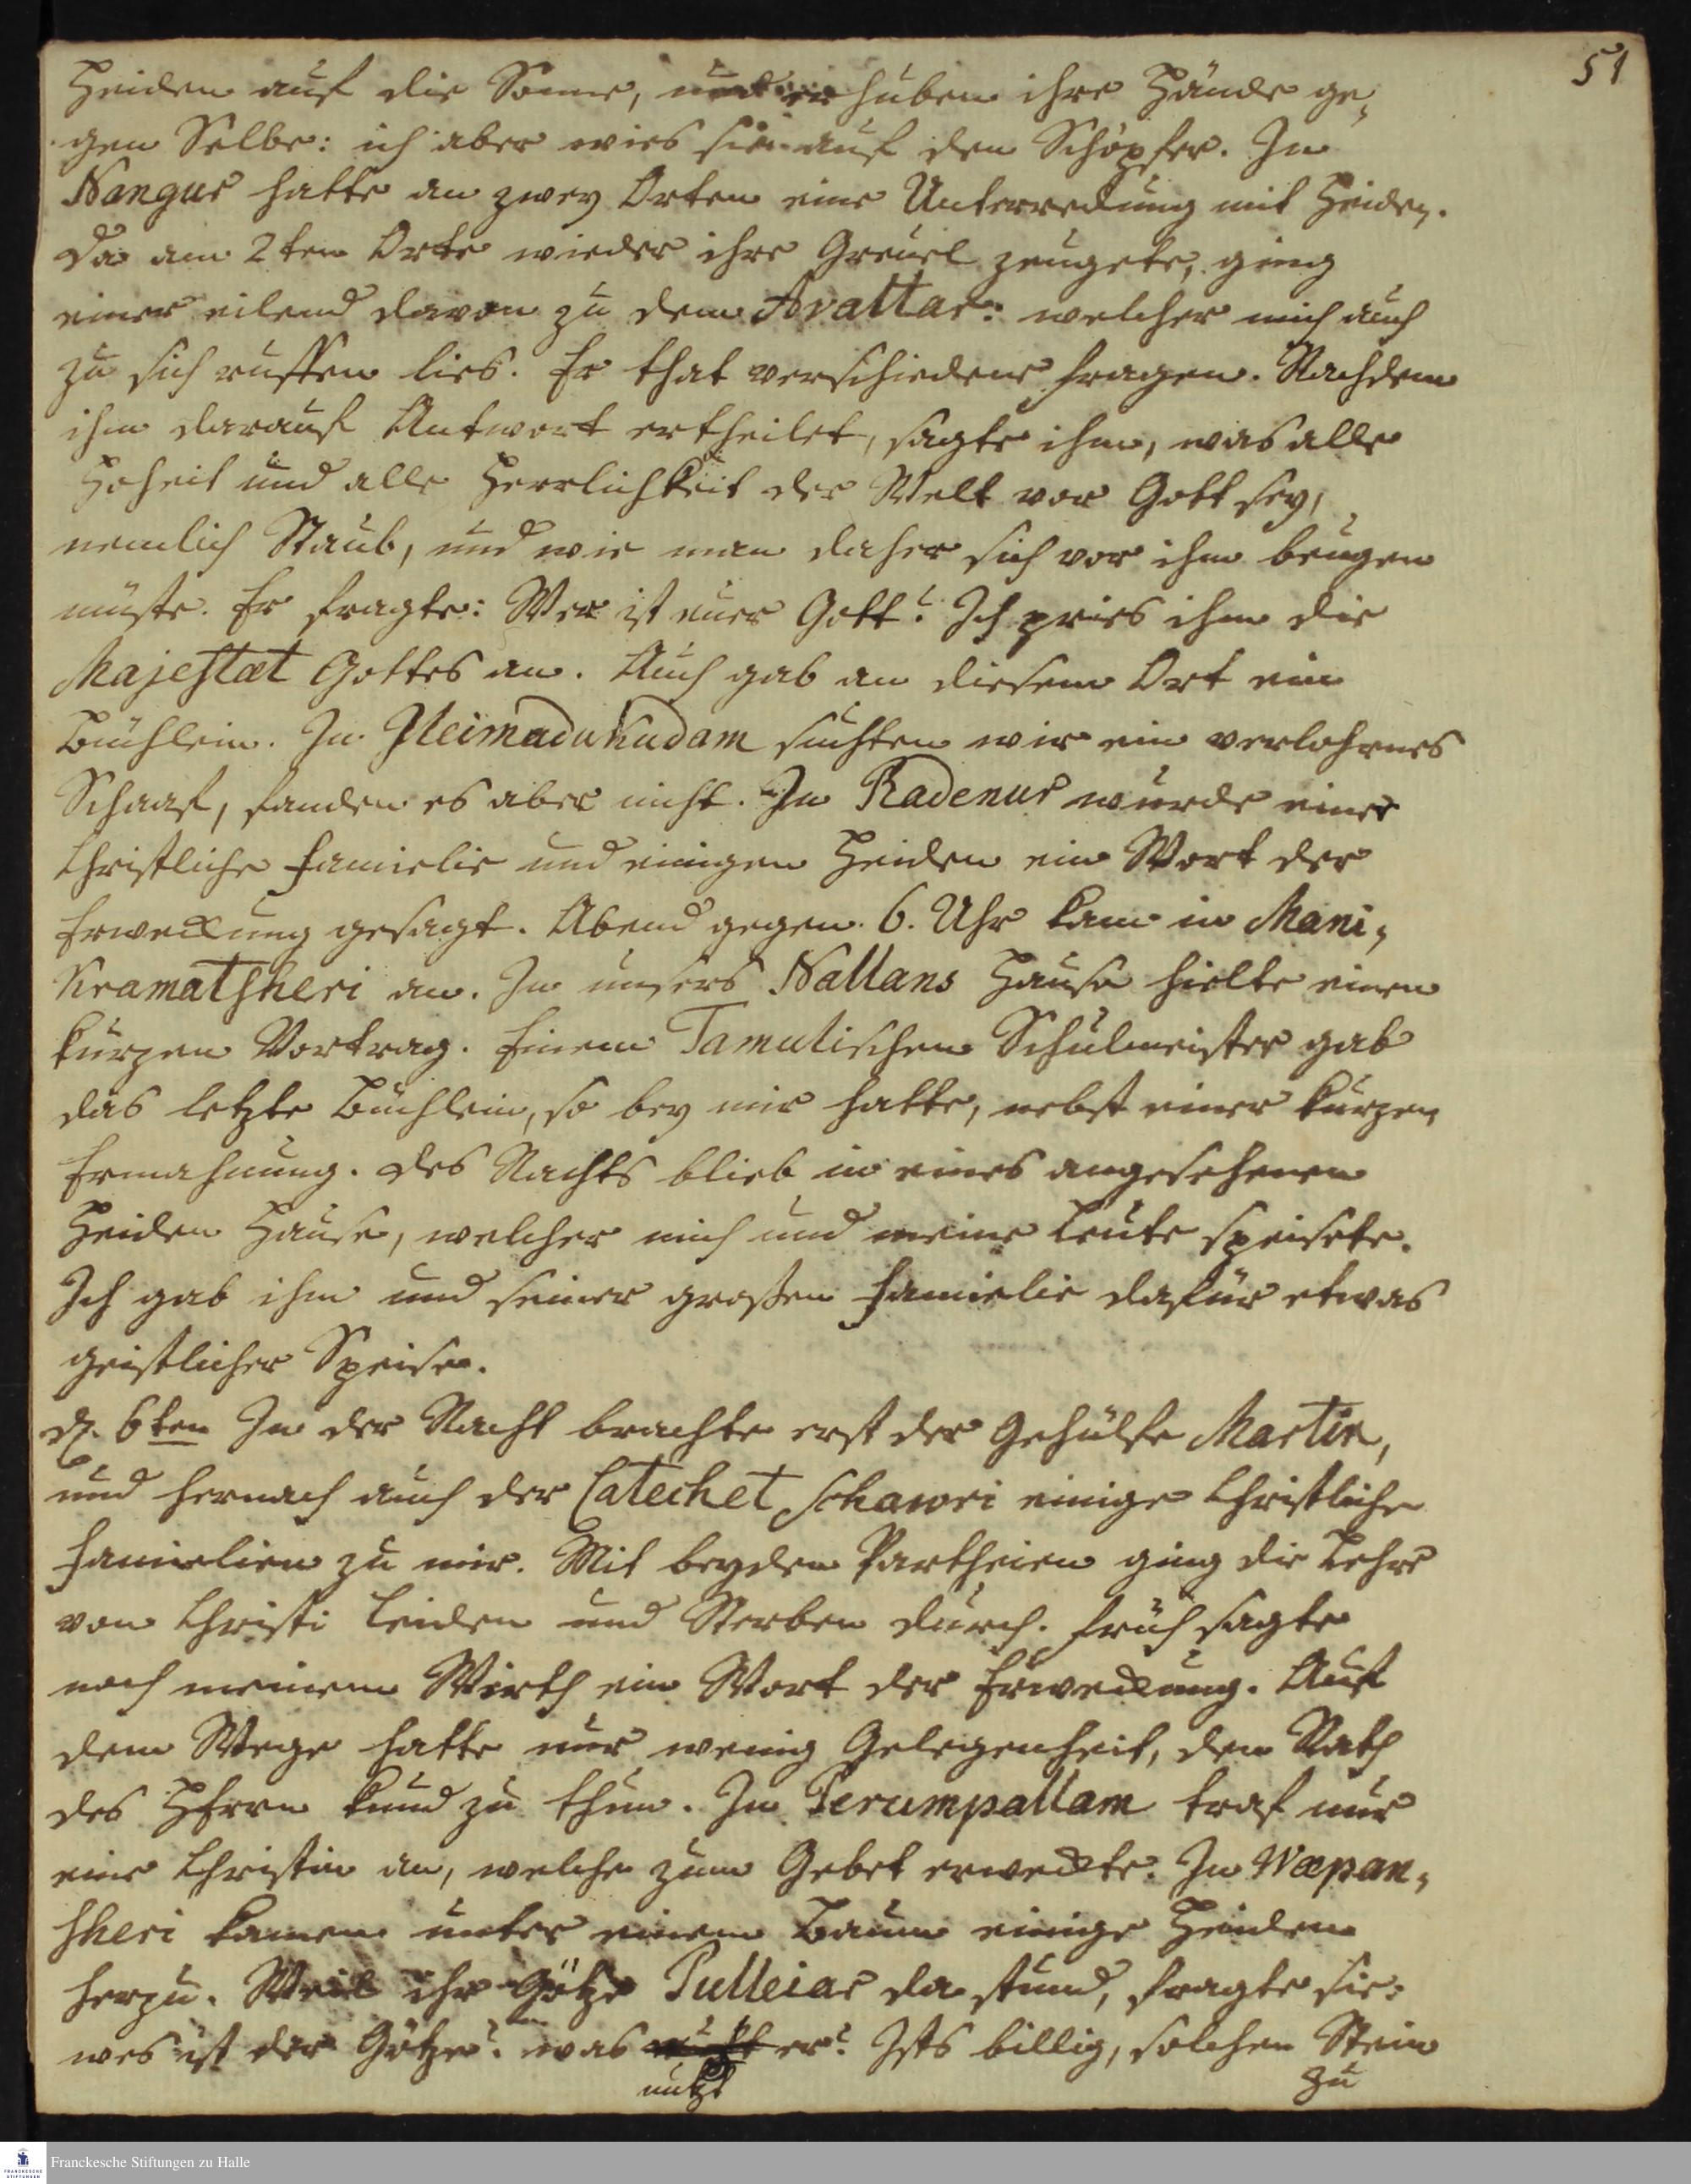 51
Heiden auf die Sonne, und huben ihre Hände ge¬
gen Selbe: ich aber wies sie auf den Schöpfer. In
Nangur hatte an zwey Orten eine Unterredung mit Heiden.
Da am 2ten Orte wieder ihre Greuel zeugete, ging
einer eilend davon zu dem Avaltar: welcher mich auch
zu sich ruffen lies. Er that verschiedene fragen. Nachdem
ihm darauf Antwort ertheilet, sagte ihm, was alle
Hoheit und alle Herrlichkeit der Welt vor Gott sey,
nemlich Staub, und wie man daher sich vor ihm beugen
müste. Er fragte: Wer ist euer Gott? Ich pries ihm die
Majestæt Gottes an. Auch gab an diesem Ort ein
Büchlein. In Pleimadukudam suchten wir ein verlohrnes
Schaaf, fanden es aber nicht. In Radenur wurde einer
Christliche Familie und einigen Heiden ein Wort der
Erweckung gesagt. Abend gegen 6. Uhr kam in Mani¬
kramatsheri an. In unsers Nallans Hause hielte einen
kurzen Vortrag. Einem Tamulischen Schulmeister gab
das letzte Büchlein, so bey mir hatte, nebst einer kurzen
Ermahnung. Des Nachts blieb in eines angesehenen
Heiden Hause, welcher mich und meine Leute speisete.
Ich gab ihm und seiner großen Familie dafür etwas
geistlicher Speise.
d. 6ten In der Nacht brachte erst der Gehülfe Martin,
und hernach auch der Catechet Schawri einige Christliche
Familien zu mir. Mit beyden Partheien ging die Lehre
von Christi Leiden und Sterben durch. Früh sagte
noch meinem Wirth ein Wort der Erweckung. Auf
dem Wege hatte nur wenig Gelegenheit, den Rath
des HErrn kund zu thun. In Perumpallam traf nur
eine Christin an, welche zum Gebet erweckte. In Wæpan¬
sheri kamen unter einem Baum einige Heiden
herzu. Weil ihr Götze Pulleiar da stund, fragte sie:
wes ist der Götze? was er? Ists billig, solchen Stein
nutzt zu
Franckesche Stiftungen zu Halle